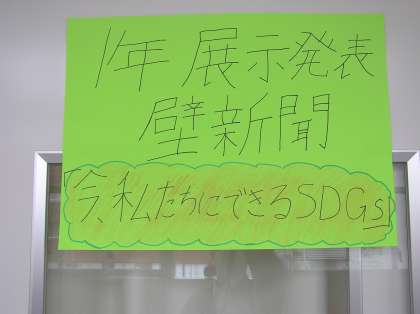 1年 展示発表
壁新聞
「今、私たちにできるSDGs」